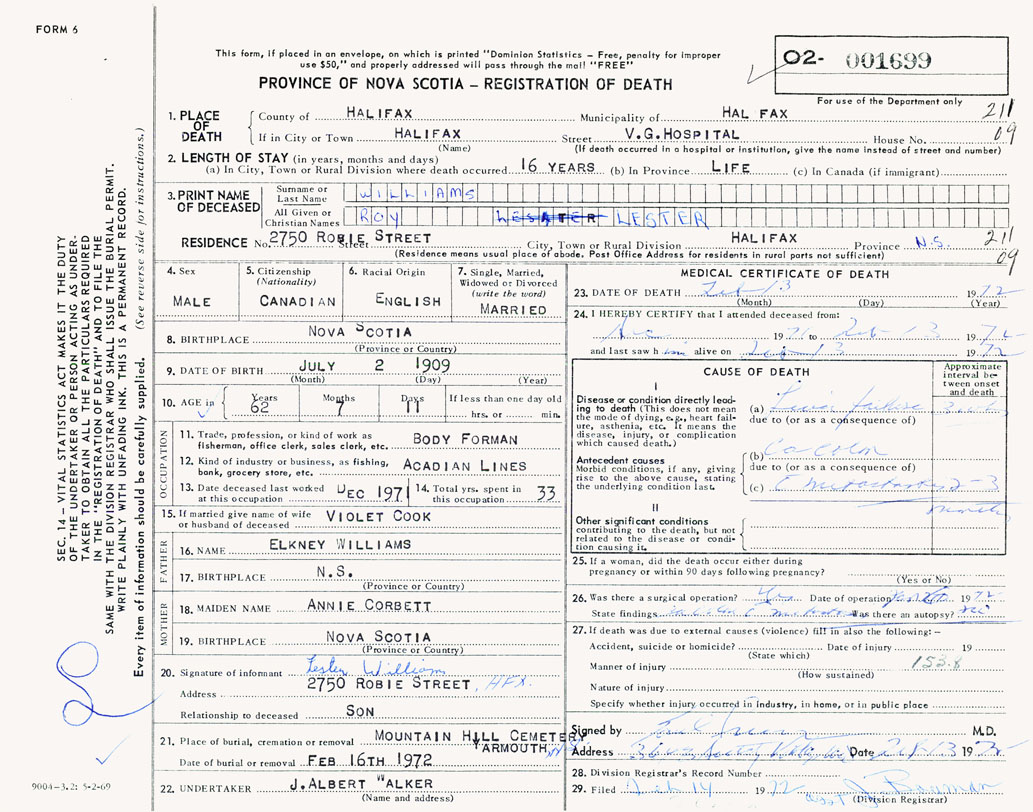 FORM 6
This form, if placed in an envelope, on which is printed "Dominion Statistics – Free, penalty for improper
use $50," and properly addressed will pass through the mail "FREE"
O2- 001699
For use of the Department only
PROVINCE OF NOVA SCOTIA – REGISTRATION OF DEATH
1. PLACE OF DEATH
County of HALIFAX Municipality of HAL FAX 211
If in City or Town HALIFAX Street V.G.HOSPITAL House No. 09
(Name) (If death occurred in a hospital or institution, give the name instead of street and number)
2. LENGTH OF STAY (in years, months and days)
(a) In City, Town or Rural Division where death occurred 16 YEARS (b) In Province LIFE (c) In Canada (if immigrant)
3. PRINT NAME OF DECEASED
Surname or Last Name WILLIAMS
All Given or Christian Names ROY LESTER
RESIDENCE No. 2750 ROBIE STREET Street City, Town or Rural Division HALIFAX Province N.S. 211
(Residence means usual place of abode. Post Office Address for residents in rural parts not sufficient) 09
4. Sex
MALE
5. Citizenship (Nationality)
CANADIAN
6. Racial Origin
ENGLISH
7. Single, Married, Widowed or Divorced (write the word)
MARRIED
8. BIRTHPLACE NOVA SCOTIA
(Province or Country)
9. DATE OF BIRTH JULY 2 1909
(Month) (Day) (Year)
10. AGE in Years 62 Months 7 Days 11 If less than one day old
hrs. or min.
OCCUPATION
11. Trade, profession, or kind of work as fisherman, office clerk, sales clerk, etc. BODY FORMAN
12. Kind of industry or business, as fishing, bank, grocery store, etc. ACADIAN LINES
13. Date deceased last worked at this occupation DEC 1971
14. Total yrs. spent in this occupation 33
15. If married give name of wife or husband of deceased VIOLET COOK
FATHER
16. NAME ELKNEY WILLIAMS
17. BIRTHPLACE N.S.
(Province or Country)
MOTHER
18. MAIDEN NAME ANNIE CORBETT
19. BIRTHPLACE NOVA SCOTIA
(Province or Country)
20. Signature of informant Lesley Williams
Address 2750 ROBIE STREET, HFX.
Relationship to deceased SON
21. Place of burial, cremation or removal MOUNTAIN HILL CEMETERY
YARMOUTH
Date of burial or removal FEB 16TH 1972
22. UNDERTAKER J.ALBERT WALKER
(Name and address)
MEDICAL CERTIFICATE OF DEATH
23. DATE OF DEATH Feb 13 1972
(Month) (Day) (Year)
24. I HEREBY CERTIFY that I attended deceased from:
1971 to Feb 13 1972
and last saw him alive on Feb 13 1972
CAUSE OF DEATH
Approximate interval between onset and death
I
Disease or condition directly leading to death (This does not mean the mode of dying, e.g., heart failure, asthenia, etc. It means the disease, injury, or complication which caused death.)
(a) Liver failure
due to (or as a consequence of)
Antecedent causes
Morbid conditions, if any, giving rise to the above cause, stating the underlying condition last.
(b) Ca Colon
due to (or as a consequence of)
(c) metastases 2-3
months
II
Other significant conditions
contributing to the death, but not related to the disease or condition causing it.
25. If a woman, did the death occur either during pregnancy or within 90 days following pregnancy?
(Yes or No)
26. Was there a surgical operation? Yes Date of operation 1972
State findings Was there an autopsy? no
27. If death was due to external causes (violence) fill in also the following: –
Accident, suicide or homicide? Date of injury 19
(State which)
Manner of injury 153.8
(How sustained)
Nature of injury
Specify whether injury occurred in industry, in home, or in public place
Signed by M.D.
Address Date Feb 13 1972
28. Division Registrar's Record Number
29. Filed Feb 14 1972
(Division Registrar)
SEC. 14 – VITAL STATISTICS ACT MAKES IT THE DUTY
OF THE UNDERTAKER OR PERSON ACTING AS UNDERTAKER
TO OBTAIN ALL THE PARTICULARS REQUIRED
IN THE "REGISTRATION OF DEATH" AND TO FILE THE
SAME WITH THE DIVISION REGISTRAR WHO SHALL ISSUE THE BURIAL PERMIT.
WRITE PLAINLY WITH UNFADING INK, THIS IS A PERMANENT RECORD.
Every item of information should be carefully supplied. (See reverse side for instructions.)
9004-3.2: 5-2-69